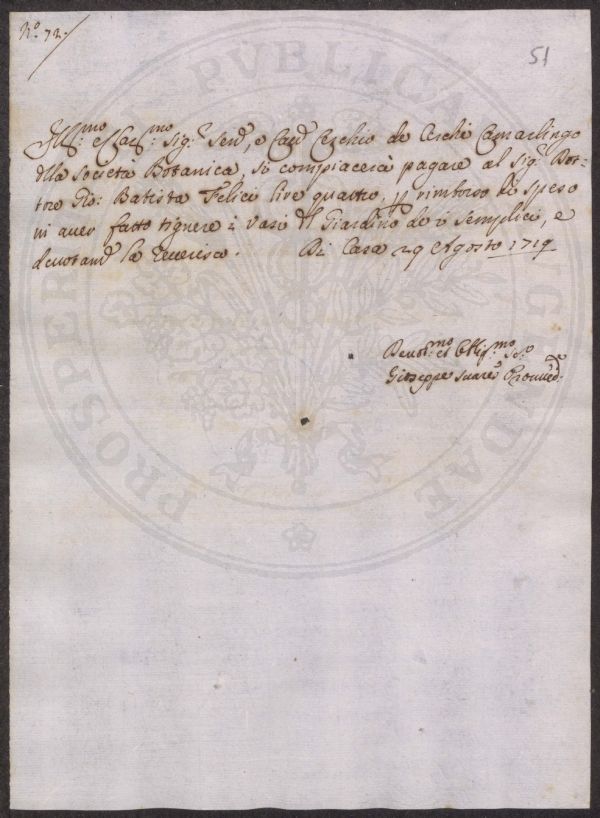 N.º 72.
51
Ill:mo e Clar:mo Sig.r Sen.r, e Cav.r Cerchio de Cerchi Camarlingo
della Società Botanica, si compiacerà pagare al Sig.r Dot=
tore Gio: Batista Felici lire quattro, p rimborso di spese
in aver fatto tignere i Vasi del Giardino de i Semplici, e
devotam.e la reverisco. Di Casa 29 Agosto 1719
Devot:mo et Obblig:mo Se.o
Giuseppe Suares Provved.e
PROSPERITATI PVBLICAE AVGENDAE